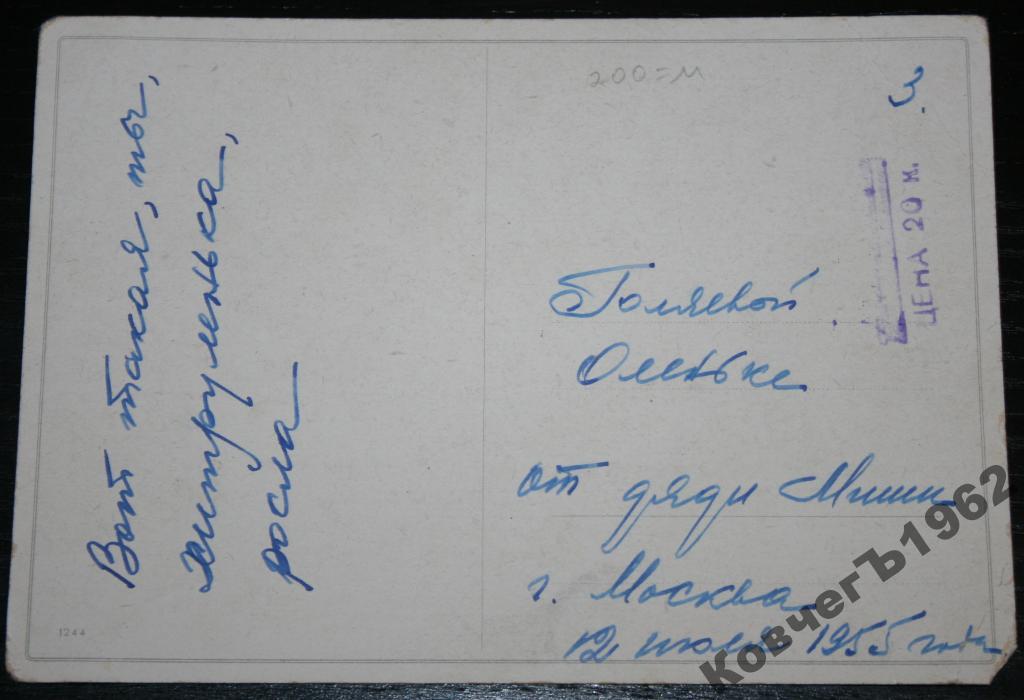 Вот такая, ты,
хитруленька,
росла
200=м
ЦЕНА 20 к.
Голяевой
Оленьке
от дяди Миши
г. Москва
12 июля 1955 года
1244
КовчегЪ1962